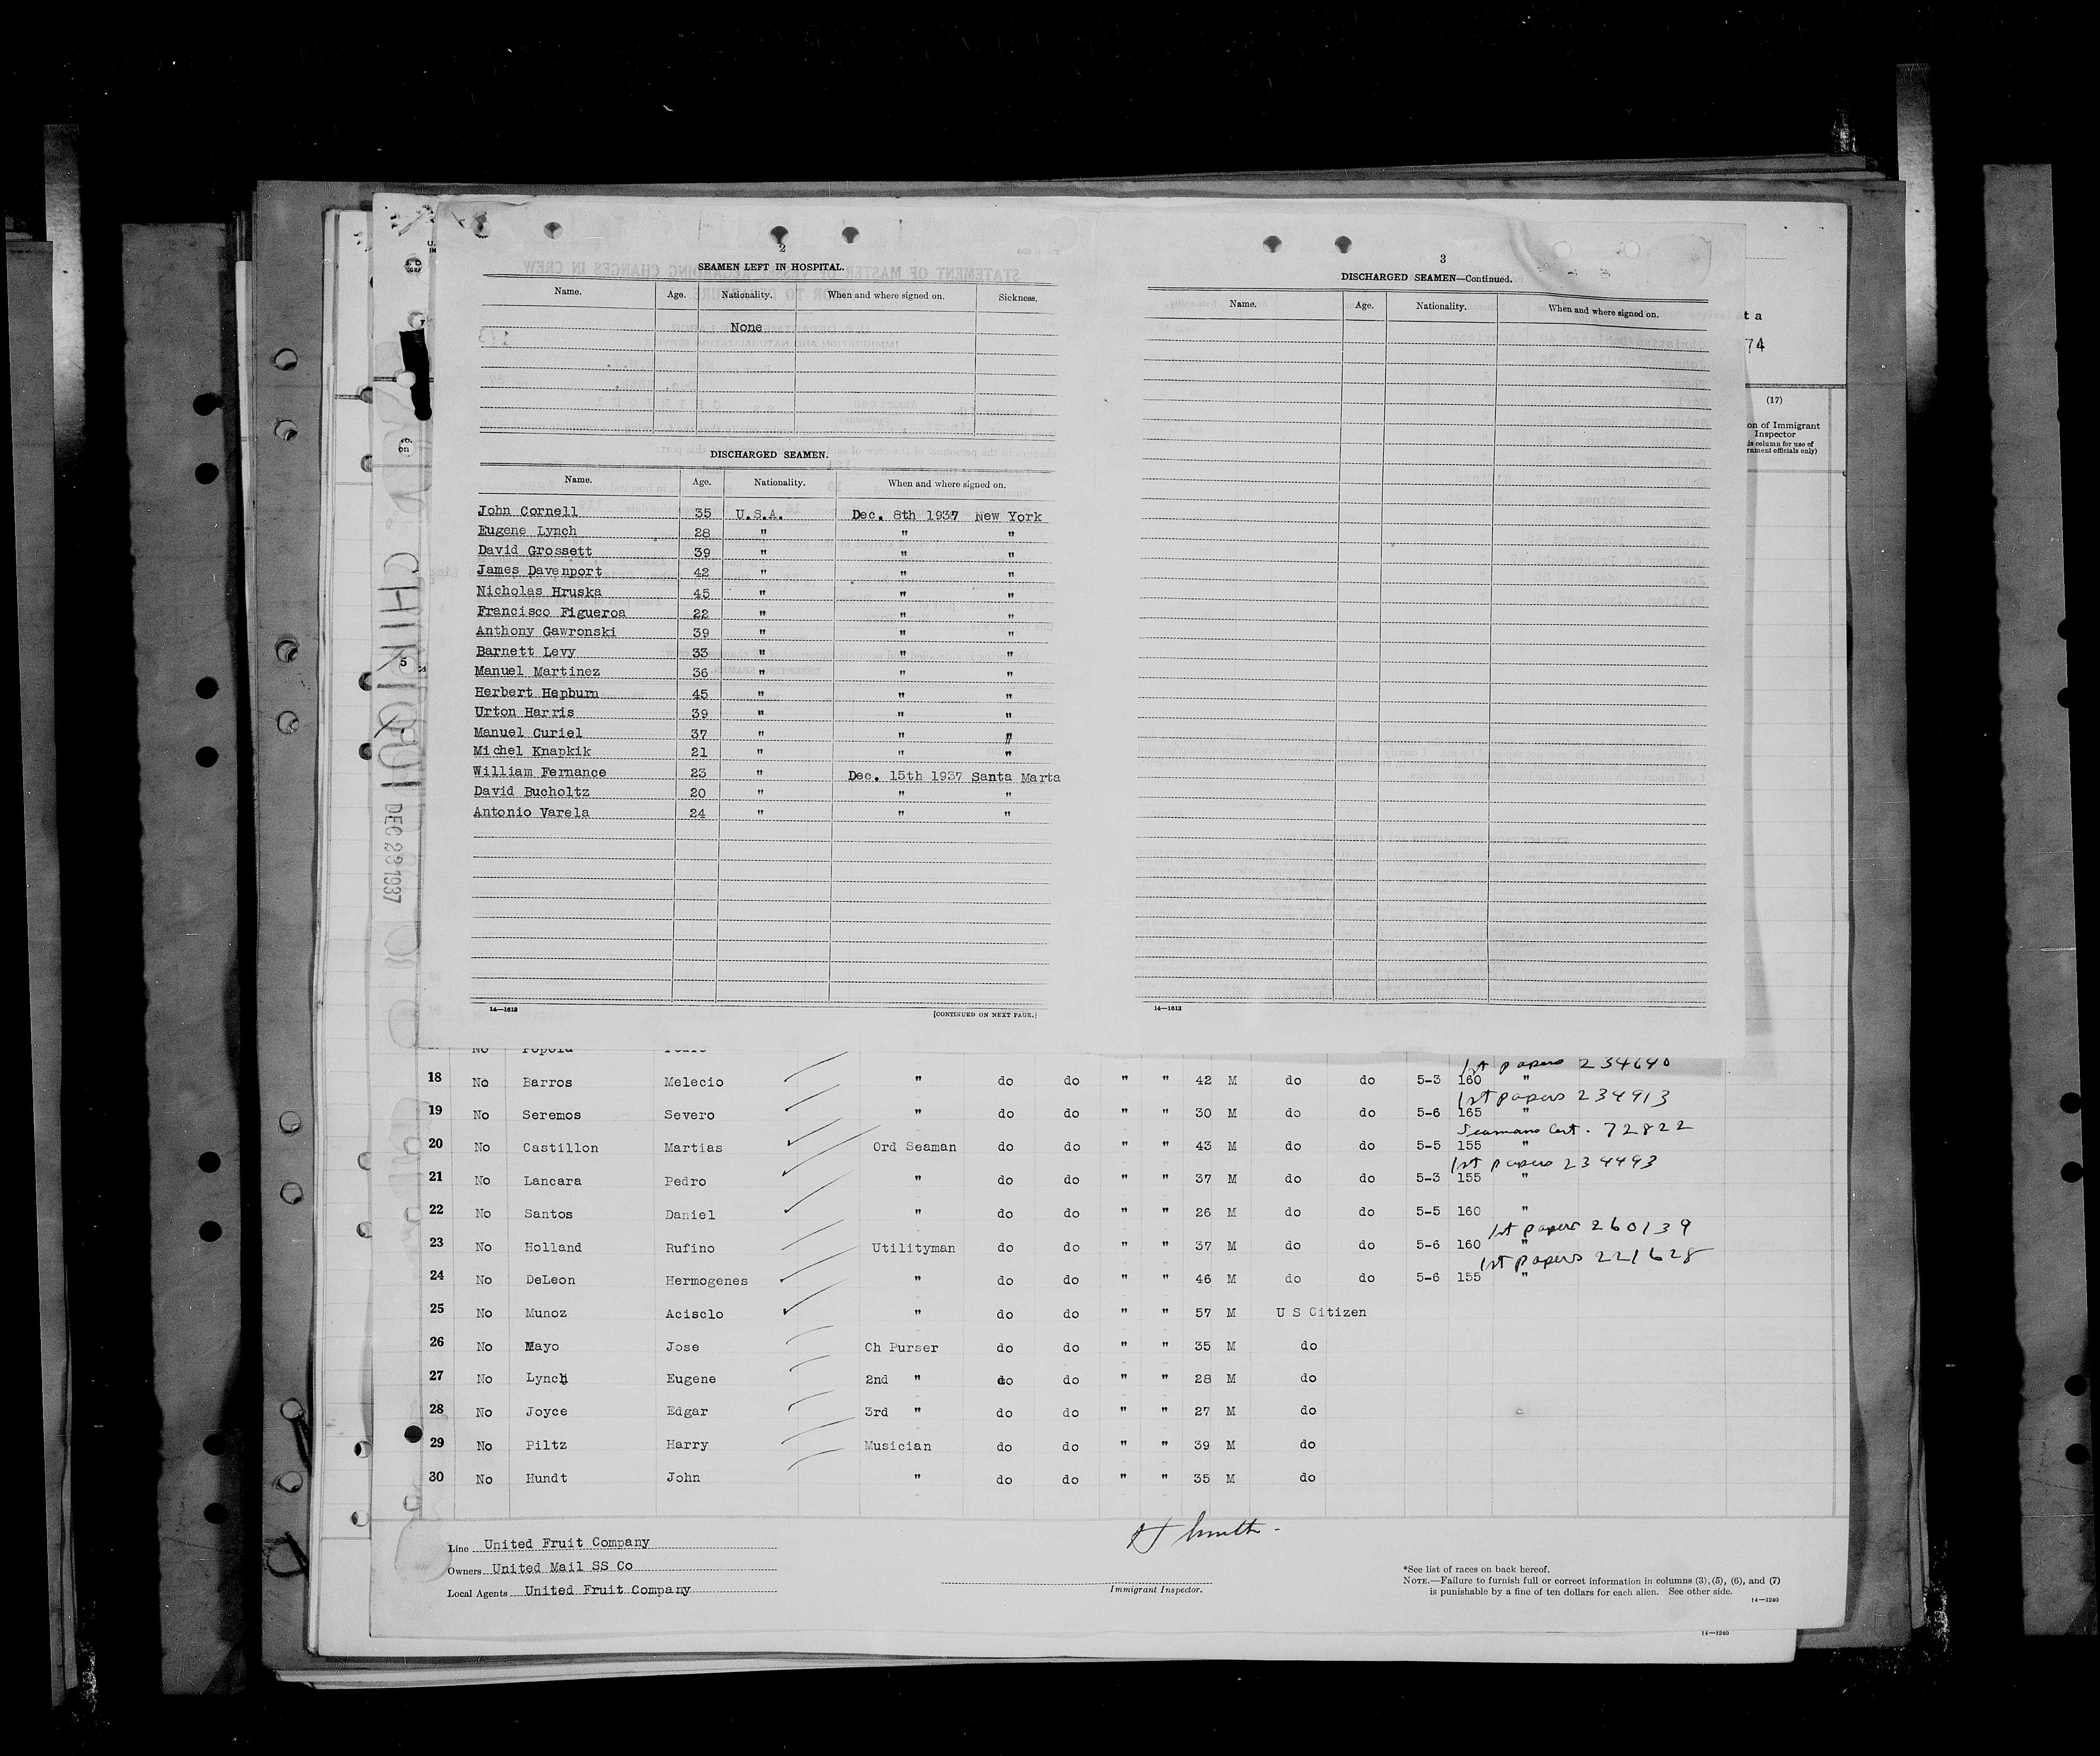 2
SEAMEN LEFT IN HOSPITAL.
Name. Age. Nationality. When and where signed on. Sickness.
None
DISCHARGED SEAMEN.
Name. Age. Nationality. When and where signed on.
John Cornell 35 U.S.A. Dec. 8th 1937 New York
Eugene Lynch 28 " " "
David Grossett 39 " " "
James Davenport 42 " " "
Nicholas Hruska 45 " " "
Francisco Figueroa 22 " " "
Anthony Gawronski 39 " " "
Barnett Levy 33 " " "
Manuel Martinez 36 " " "
Herbert Hepburn 45 " " "
Urton Harris 39 " " "
Manuel Curiel 37 " " "
Michel Knapkik 21 " " "
William Fernance 23 " Dec. 15th 1937 Santa Marta
David Bucholtz 20 " " "
Antonio Varela 24 " " "
14—1613
[CONTINUED ON NEXT PAGE.]
3
DISCHARGED SEAMEN—Continued.
Name. Age. Nationality. When and where signed on.
14—1613
ta
74
(17)
on of Immigrant
Inspector
is column for use of
rnment officials only)
CHIRIQUI
DEC 23 1937
5
No
1st papers 234640
18 No Barros Melecio " do do " " 42 M do do 5-3 160 "
1st papers 234913
19 No Seremos Severo " do do " " 30 M do do 5-6 165 "
Seamans Cert. 72822
20 No Castillon Martias Ord Seaman do do " " 43 M do do 5-5 155 "
1st papers 234493
21 No Lancara Pedro " do do " " 37 M do do 5-3 155 "
22 No Santos Daniel " do do " " 26 M do do 5-5 160 "
1st papers 260139
23 No Holland Rufino Utilityman do do " " 37 M do do 5-6 160 "
1st papers 221628
24 No DeLeon Hermogenes " do do " " 46 M do do 5-6 155 "
25 No Munoz Acisclo " do do " " 57 M U S Citizen
26 No Mayo Jose Ch Purser do do " " 35 M do
27 No Lynch Eugene 2nd " do do " " 28 M do
28 No Joyce Edgar 3rd " do do " " 27 M do
29 No Piltz Harry Musician do do " " 39 M do
30 No Hundt John " do do " " 35 M do
Line United Fruit Company
Owners United Mail SS Co
Local Agents United Fruit Company
Smith
Immigrant Inspector.
*See list of races on back hereof.
NOTE.—Failure to furnish full or correct information in columns (3), (5), (6), and (7)
is punishable by a fine of ten dollars for each alien. See other side.
14—1240
14—1240